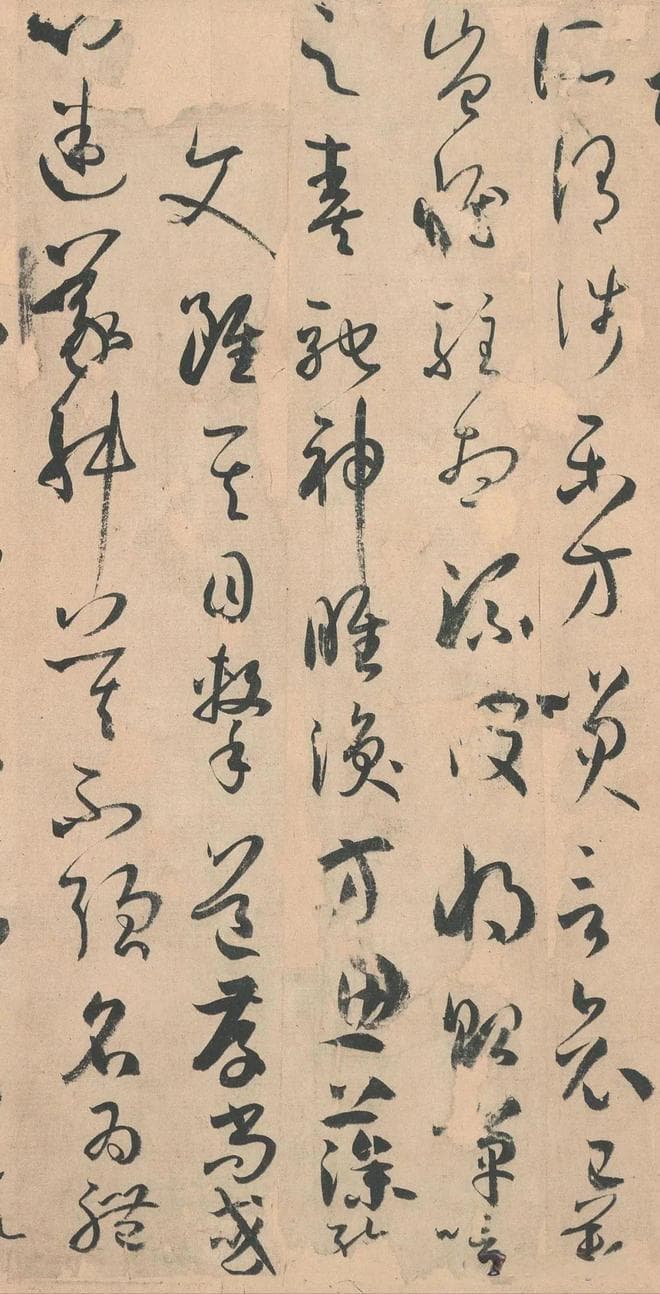 所謂涉樂方笑言哀已歎
豈惟駐想流波將貽嘽噯
之奏馳神睢渙方思藻繪
文雖其目擊道存尚或
心迷義舛莫不強名為體